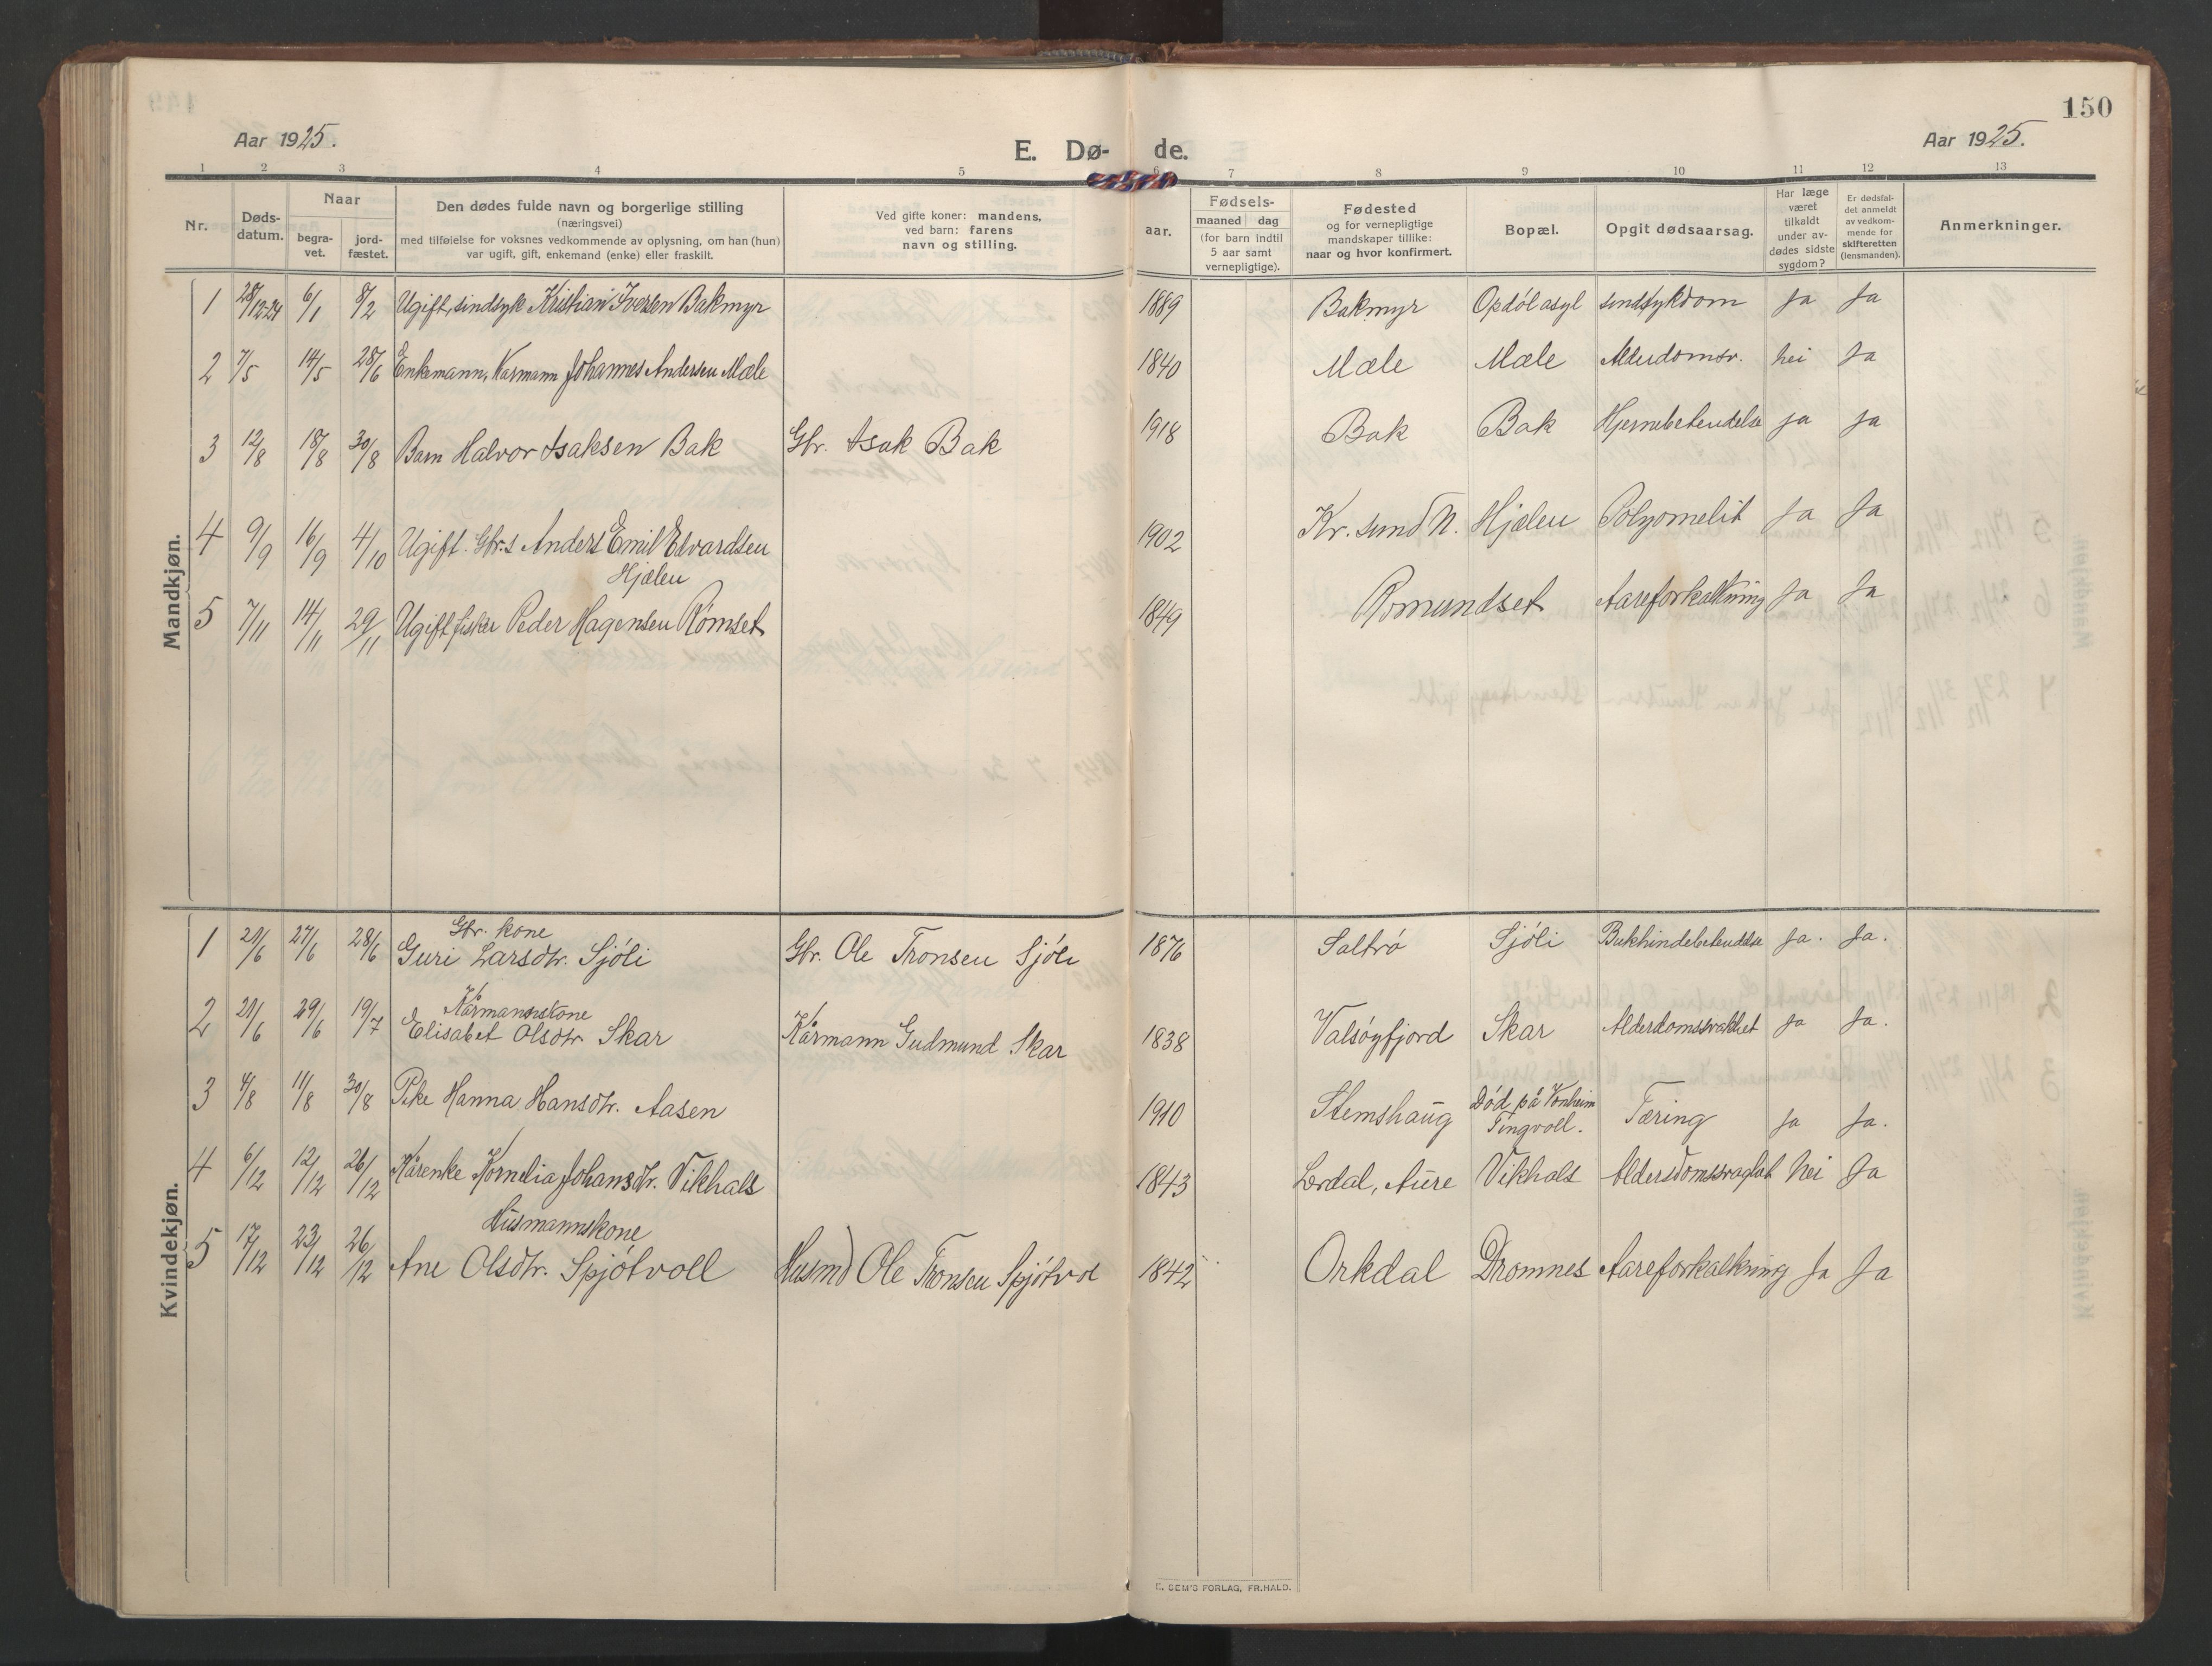 150
Aar 1925.
E. Dø- de.
Aar 1925.
1 2 3 4 5 6 7 8 9 10 11 12 13
Nr.
Døds-
datum.
Naar
begra-
vet.
jord-
fæstet.
Den dødes fulde navn og borgerlige stilling
(næringsvei)
med tilføielse for voksnes vedkommende av oplysning, om han (hun)
var ugift, gift, enkemand (enke) eller fraskilt.
Ved gifte koner: mandens,
ved barn: farens
navn og stilling.
Fødsels-
aar.
maaned dag
(for barn indtil
5 aar samt
vernepligtige).
Fødested
og for vernepligtige
mandskaper tillike:
naar og hvor konfirmert.
Bopæl.
Opgit dødsaarsag.
Har læge
været
tilkaldt
under av-
dødes sidste
sygdom?
Er dødsfal-
det anmeldt
av vedkom-
mende for
skifteretten
(lensmanden).
Anmerkninger.
Mandkjøn.
1 28/12-24 6/1 8/2 Ugift, sindsyk Kristian Iversen Bakmyr 1889 Bakmyr Opdøl asyl sindsykdom Ja Ja
2 7/5 14/5 28/6 Enkemann, Karmann Johannes Andersen Mæle 1840 Mæle Mæle Alderdomsv. nei Ja
3 12/8 18/8 30/8 Barn Halvor Isaksen Bak Gbr. Isak Bak 1918 Bak Bak Hjernebetendelse ja ja
4 9/9 16/9 4/10 Ugift. Gbr.s Anders Emil Edvardsen 1902 Kr.sund N. Hjælen Polyomelit Ja Ja
Hjælen
5 7/11 14/11 29/11 Ugift fisker Peder Hagensen Rømset 1849 Romundset Aareforkalkning Ja Ja
Kvindekjøn.
Gbr. kone
1 21/6 27/6 28/6 Guri Larsdtr. Sjøli Gbr. Ole Tronsen Sjøli 1876 Saltrø Sjøli Bukhindebetendelse Ja. Ja.
Kårmannskone
2 21/6 29/6 19/7 Elisabet Olsdtr. Skar Kårmann Gudmund Skar 1838 Valsøyfjord Skar Alderdomssvakhet Ja Ja.
3 4/8 11/8 30/8 Pike Hanna Hansdtr. Aasen 1910 Stemshaug Død på Vonheim Tæring Ja Ja.
Tingvoll.
4 6/12 12/12 26/12 Kårenke Kornelia Johansdtr. Vikhals 1843 Lerdal, Aure Vikhals Nei Ja
Husmannskone
5 17/12 23/12 26/12 Ane Olsdtr. Spjøtvoll Husmd Ole Tronsen Spjøtvol 1842 Orkdal Dromnes Aareforkalkning Ja Ja
E. SEM'S FORLAG, FR.HALD.